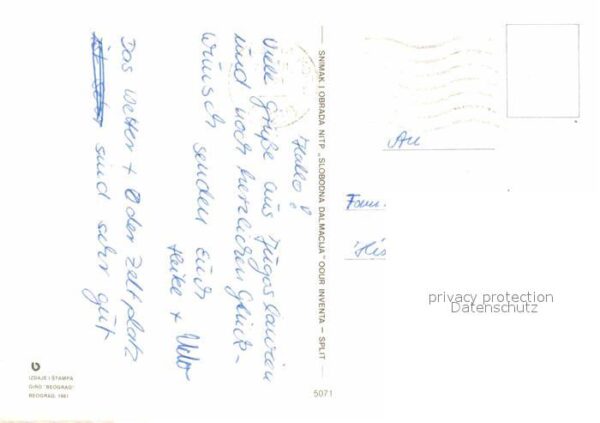 Hallo!
Viele Grüße aus Jugoslawien
und noch herzlichen Glück-
wunsch senden Euch
Heike + Udo
Das Wetter + der Zeltplatz
sind sehr gut
SNIMAK I OBRADA NITP „SLOBODNA DALMACIJA“ OOUR INVENTA – SPLIT
An
Fam.
privacy protection
Datenschutz
IZDAJE I ŠTAMPA
GIRO "BEOGRAD"
BEOGRAD, 1981
5071